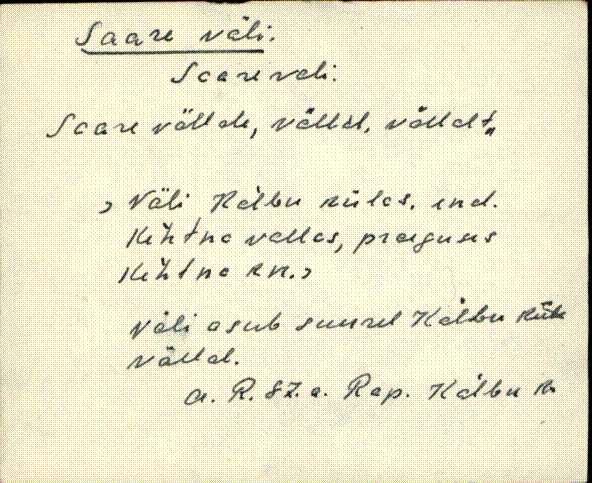 Saare väli.
Saare väli.
Saare vällale, vällal, vällalt„
› Väli Kalbu külas, end.
Kehtna vallas, praeguses
Kehtna kn.›
Väli asub suurel Kalbu küla
vällal.
a. R. Rap. Kalbu k.